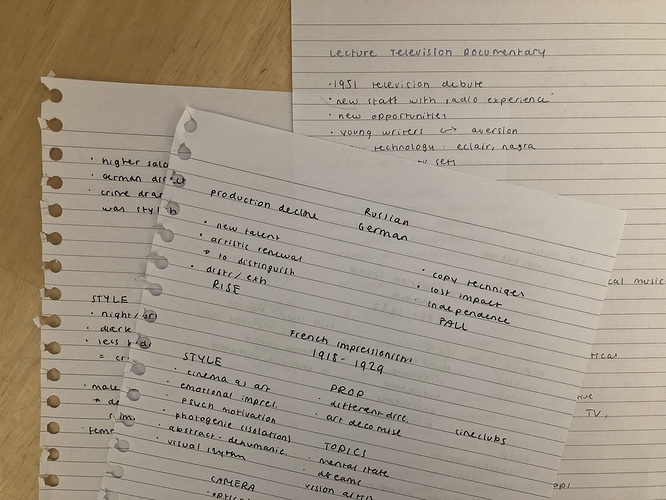 Lecture Television Documentary
· 1951 television debute
· new staff with radio experience
· new opportunities
· young writers aversion
technology: eclair, nagra
sets
cal music
tical
TV.
· higher
· German
· crime
was
STYLE
· night
· less
· male
production decline
Russian
German
· new talent
· artistic renewal
to distinguish
· distr/exh
RISE
· copy techniques
· lost impact
· independence
FALL
French impressionism
1918-1929
STYLE
· cinema as art
· emotional imprel.
· psych motivation
· photogenie (isolation)
· abstract · dehumanic.
· visual rhythm
CAMERA
PROD
· different disc.
· art deco mise
cineclubs
TOPICS
· mental state
· dreams
vision